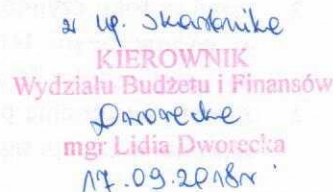 z up. Skarbnika
KIEROWNIK
Wydziału Budżetu i Finansów
Dworecka
mgr Lidia Dworecka
17.09.2018r.